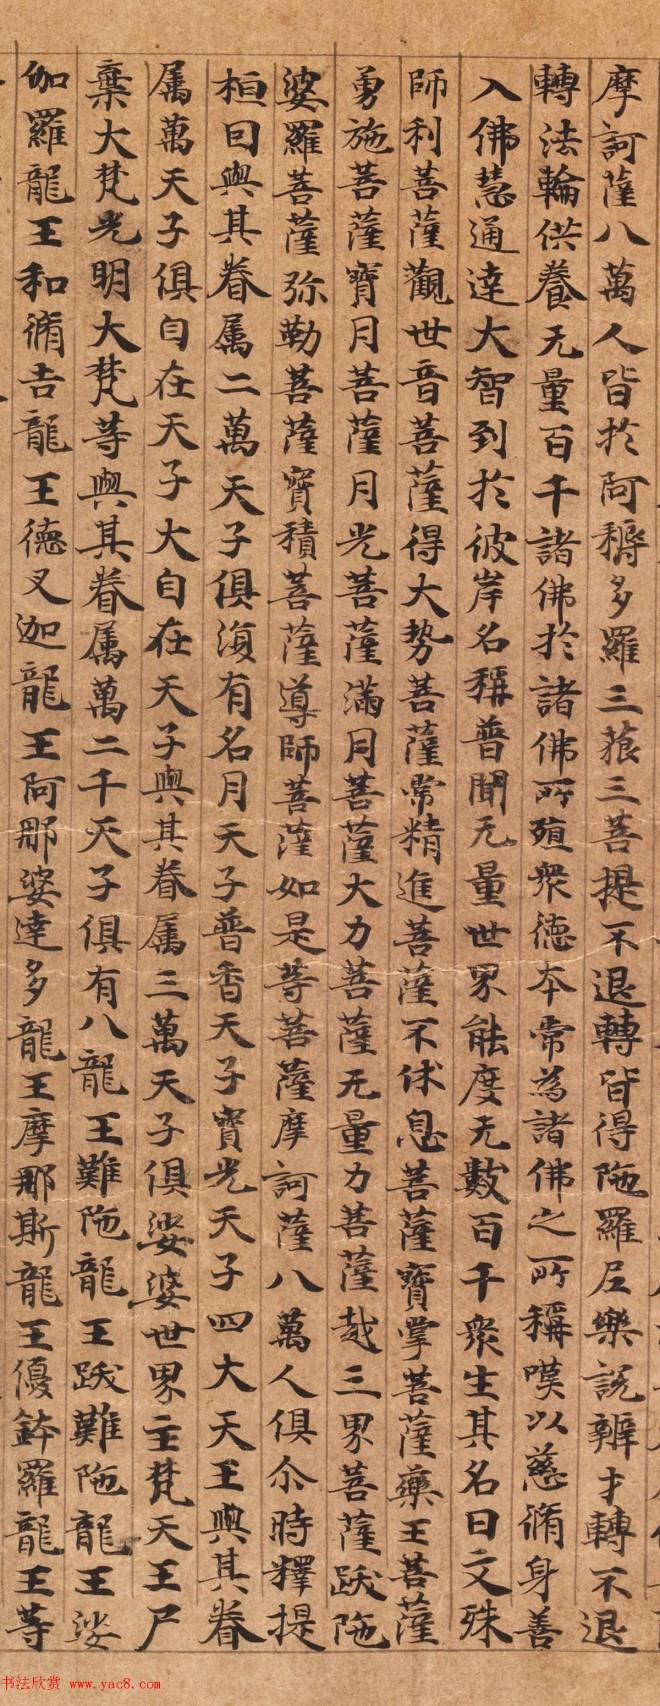 摩訶薩八萬人皆於阿耨多羅三藐三菩提不退轉皆得陁羅尼樂說辯才轉不退
轉法輪供養无量百千諸佛於諸佛所殖衆德本常為諸佛之所稱嘆以慈脩身善
入佛慧通達大智到於彼岸名稱普聞无量世界能度无數百千衆生其名曰文殊
師利菩薩觀世音菩薩得大勢菩薩常精進菩薩不休息菩薩寶掌菩薩藥王菩薩
勇施菩薩寶月菩薩月光菩薩滿月菩薩大力菩薩无量力菩薩越三界菩薩跋陁
婆羅菩薩弥勒菩薩寶積菩薩導師菩薩如是等菩薩摩訶薩八萬人俱尒時釋提
桓因與其眷属二萬天子俱復有名月天子普香天子寶光天子四大天王與其眷
属萬天子俱自在天子大自在天子與其眷属三萬天子俱娑婆世界主梵天王尸
棄大梵光明大梵等與其眷属萬二千天子俱有八龍王難陁龍王跋難陁龍王娑
伽羅龍王和脩吉龍王德叉迦龍王阿那婆達多龍王摩那斯龍王優鉢羅龍王等
书法欣赏 www.yac8.com